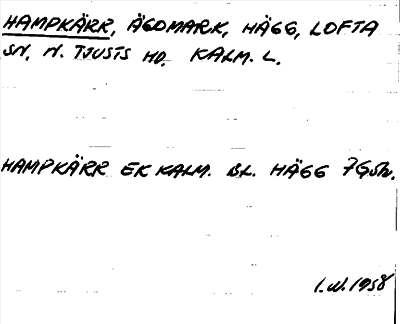 HAMPKÄRR, ÄGOMARK, HÄGG, LOFTA
SN, N. TJUSTS HD. KALM. L.
HAMPKÄRR EK KALM. BL. HÄGG 7
1958